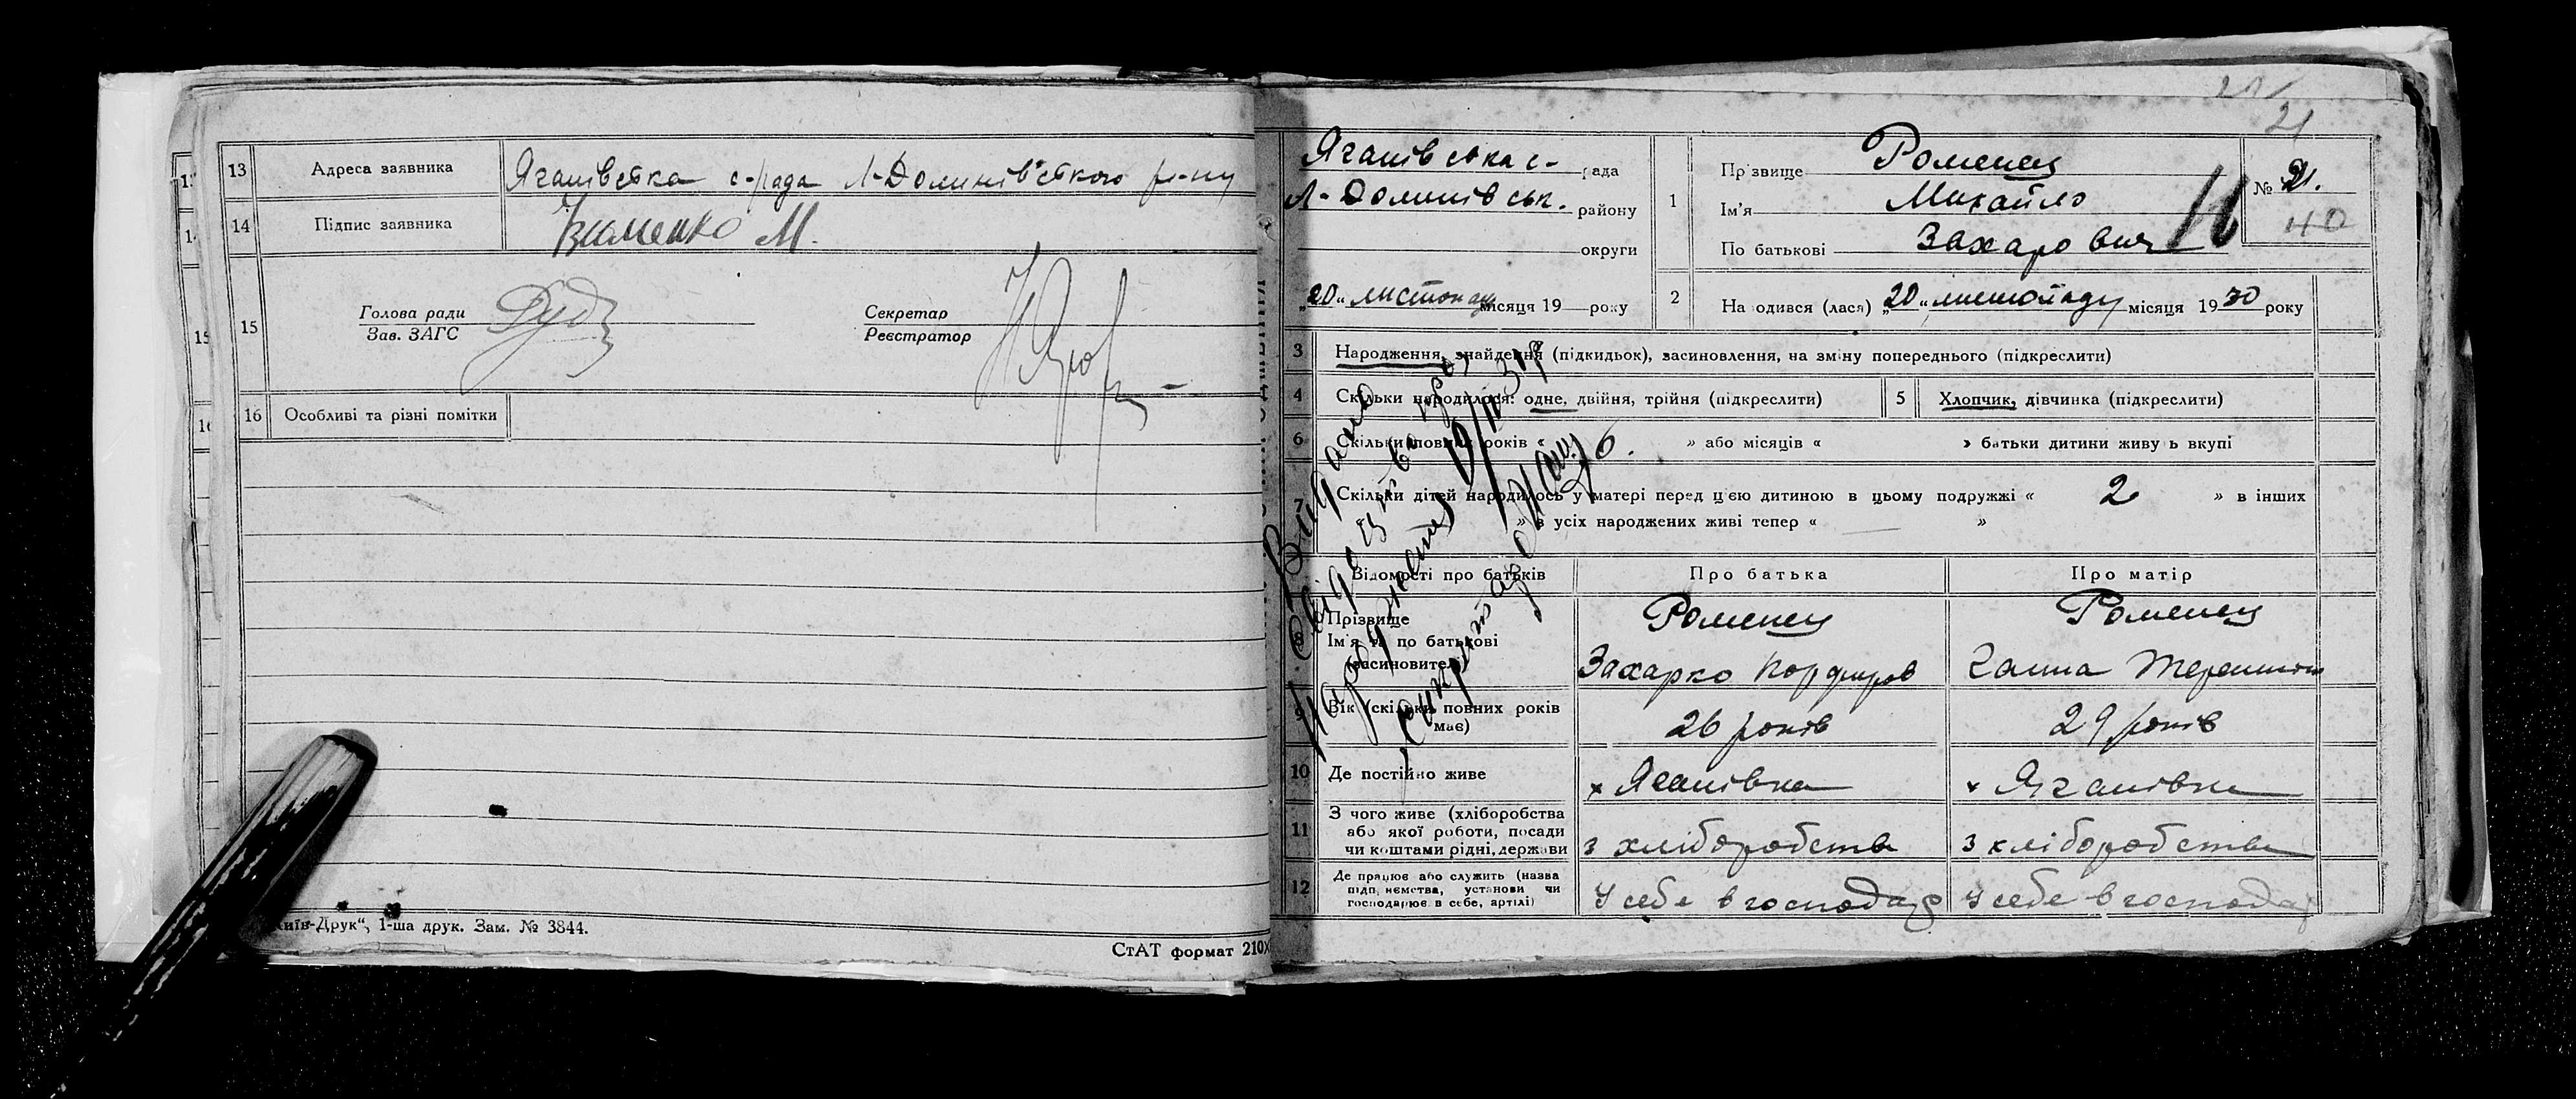 13 Адреса заявника Яганівська с-рада Л-Долинівського р-ну
14 Підпис заявника М.
15 Голова ради Секретар
Зав. ЗАГС Реєстратор
16 Особливі та різні помітки
Київ-Друк“, 1-ша друк. Зам. № 3844.
СтАТ формат 210
21
Яганівська с- рада
Л-Долинівськ. району
округи
„20“ листопад місяця 19 року
1 Прізвище Роменец
Ім'я Михайло
По батькові Захарович
№ 21.
40
2 На одився (лася) „20“ листопаду місяця 1930 року
3 Народження, знайдення (підкидьок), засиновлення, на зміну попереднього (підкреслити)
4 Скільки народилося: одне, двійня, трійня (підкреслити) 5 Хлопчик, дівчинка (підкреслити)
6 Скільки повних років « » або місяців « » батьки дитини живу ь вкупі
7 Скільки дітей народилось у матері перед цією дитиною в цьому подружжі « 2 » в інших
» з усіх народжених живі тепер « — »
Відомості про батьків Про батька Про матір
8 Прізвище Роменец Роменец
Ім'я та по батькові
(засиновителі) Захарко Порфиров Ганна
9 Вік (скільки повних років має) 26 років 29 років
10 Де постійно живе х Яганівка х Яганівка
11 З чого живе (хліборобства
або якої роботи, посади
чи коштами рідні, держави з хліборобства з хліборобства
12 Де працює або служить (назва
підп, иємства, установи чи
господарює в себе, артілі) У себе в господар У себе в господар
Видано
свідоцтво про
народження